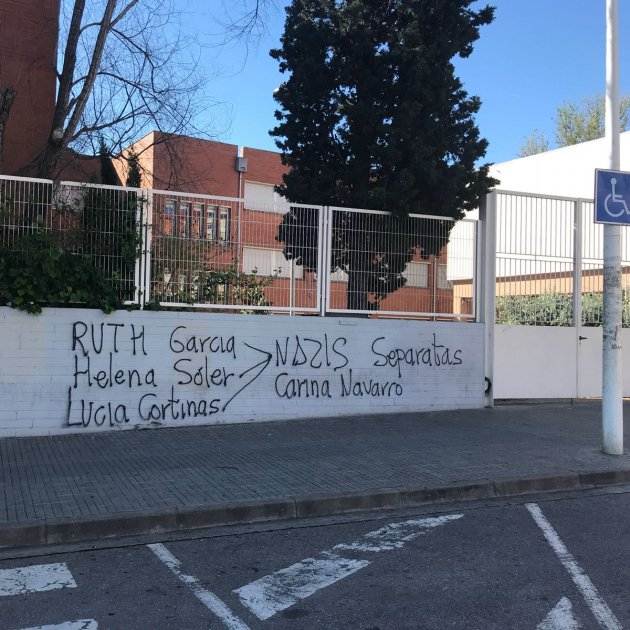 RUTH Garcia NAZIS Separatas
Helena Soler Carina Navarro
Lucia Cortinas